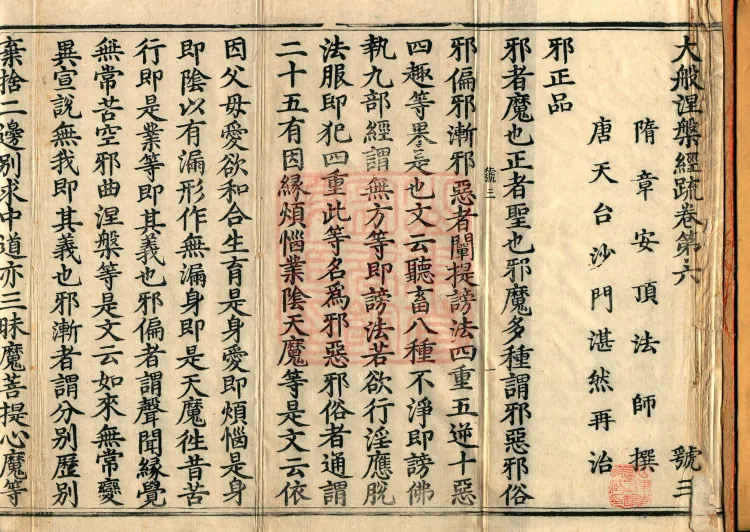 大般涅槃經疏卷第六 號三
隋章安頂法師撰
唐天台沙門湛然再治
邪正品
邪者魔也正者聖也邪魔多種謂邪惡邪俗
號三
邪偏邪漸邪惡者闡提謗法四重五逆十惡
四趣等是也文云聽畜八種不淨即謗佛
執九部經謂無方等即謗法若欲行淫應脫
法服即犯四重此等名為邪惡邪俗者通謂
二十五有因緣煩惱業陰天魔等是文云依
因父母愛欲和合生育是身愛即煩惱是身
即陰以有漏形作無漏身即是天魔徃昔苦
行即是業等即其義也邪偏者謂聲聞緣覺
無常苦空邪曲涅槃等是文云如來無常變
異宣說無我即其義也邪漸者謂分別歷別
棄捨二邊別求中道亦三昧魔菩提心魔等